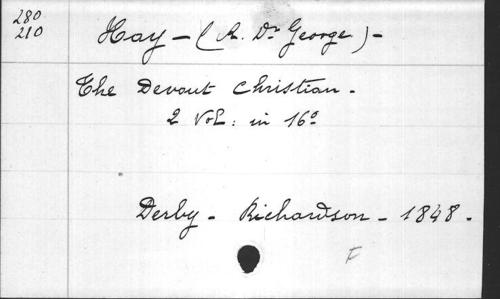 280
210
Hay - (R. Dr George) -
The Devout Christian -
2 Vol: in 16º
Derby - Richardson - 1848 -
F